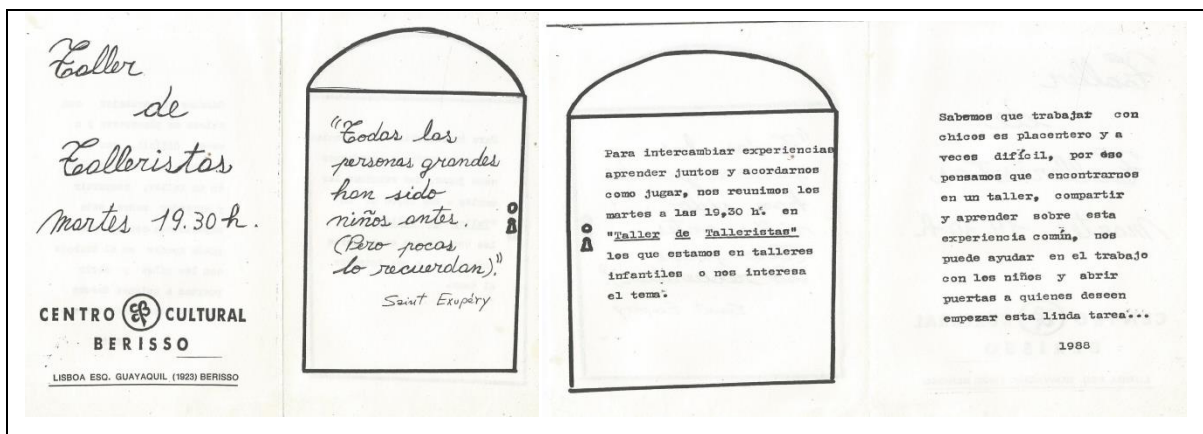 Taller
de
Talleristas
martes 19.30 h.
CENTRO CULTURAL
BERISSO
LISBOA ESQ. GUAYAQUIL (1923) BERISSO
"Todas las
personas grandes
han sido
niños antes.
(Pero pocas
lo recuerdan)."
Saint Exupéry
Para intercambiar experiencias
aprender juntos y acordarnos
como jugar, nos reunimos los
martes a las 19,30 h. en
"Taller de Talleristas"
los que estamos en talleres
infantiles o nos interesa
el tema.
Sabemos que trabajar con
chicos es placentero y a
veces difícil, por éso
pensamos que encontrarnos
en un taller, compartir
y aprender sobre esta
experiencia común, nos
puede ayudar en el trabajo
con los niños y abrir
puertas a quienes deseen
empezar esta linda tarea...
1988